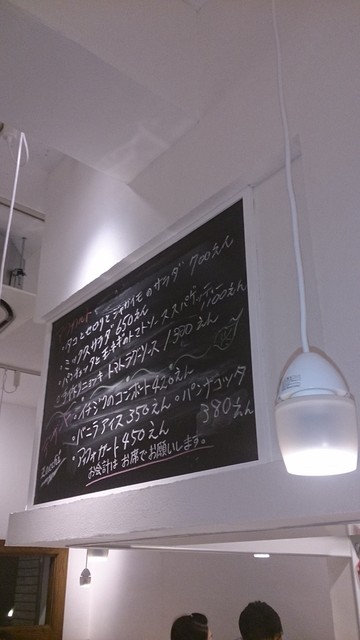 ・タコとセロリとジャガイモのサラダ 700えん
・ミックスサラダ 650えん
・パンチェッタと玉ネギのトマトソーススパゲッティー 1200えん
ニョッキ トマトラグーソース 1300えん
・イチジクのコンポート 420えん
・バニラアイス 350えん ・パンナコッタ 380えん
アッフォガート 450えん
お会計は お席でお願いします。